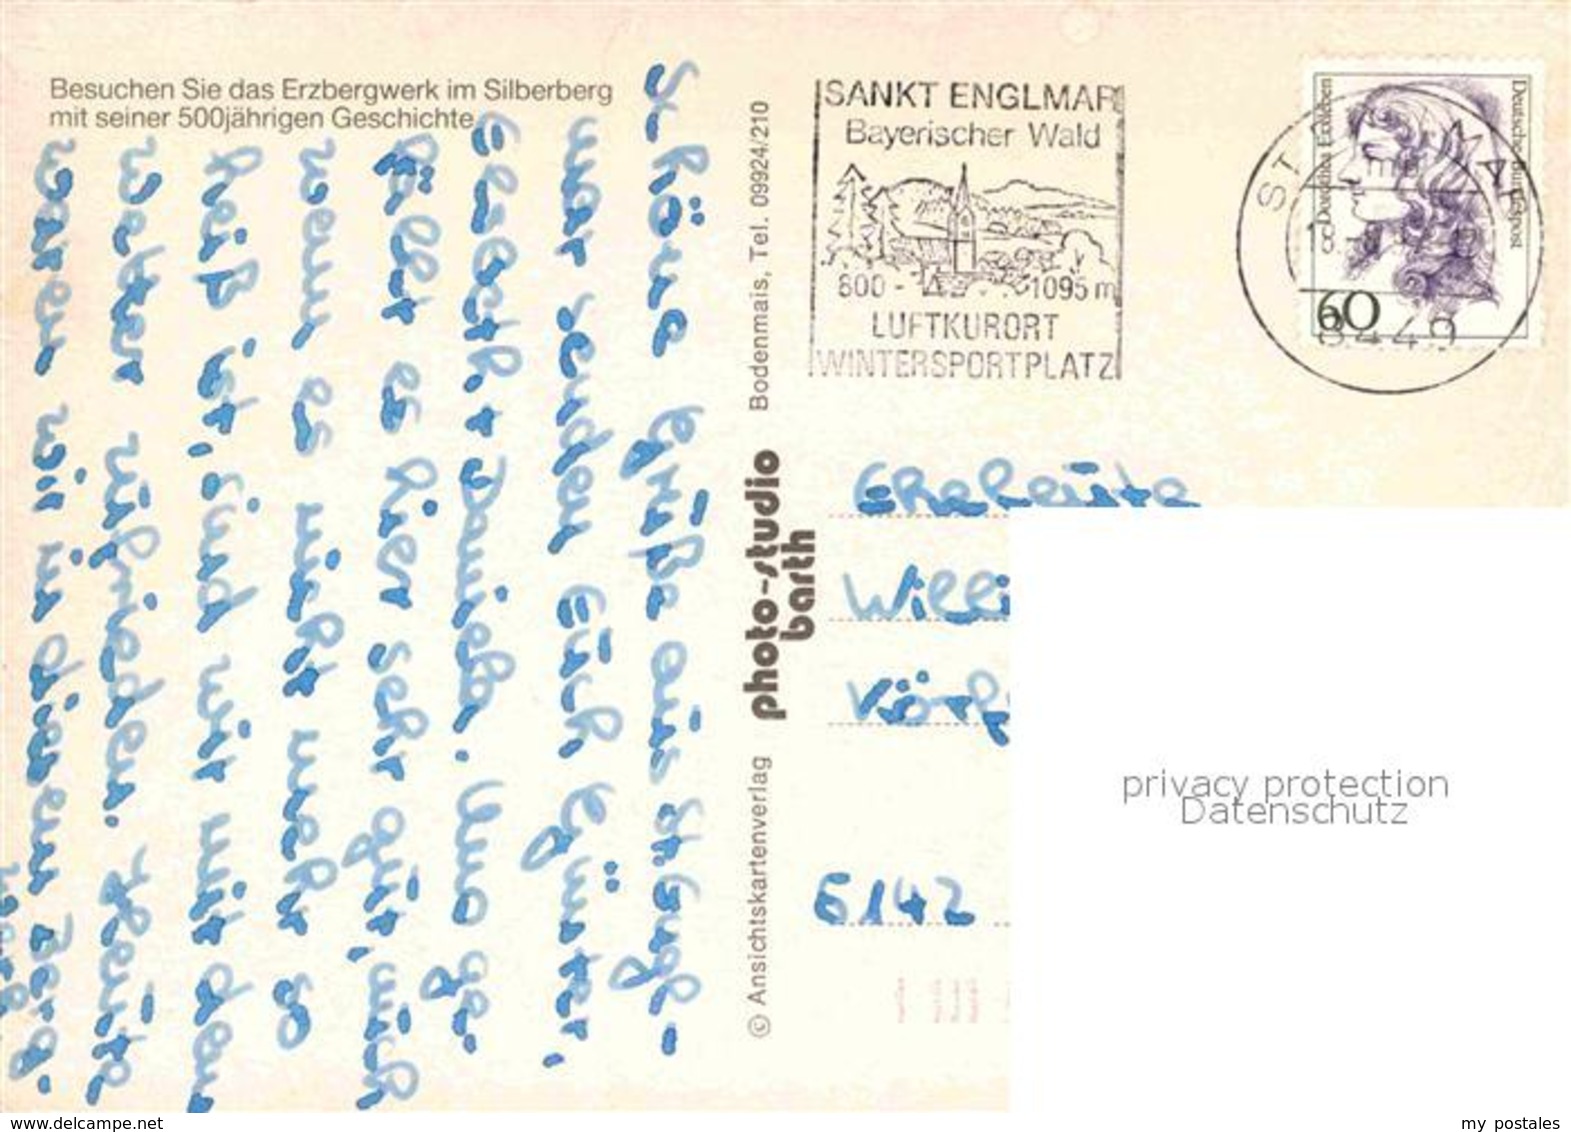 Besuchen Sie das Erzbergwerk im Silberberg
mit seiner 500jährigen Geschichte.
Schöne Grüße aus St. Engl-
mar senden Euch Günter,
Liesel + Daniela. Uns ge-
fällt es hier sehr gut, auch
wenn es nicht mehr so
heiß ist, sind wir mit dem
Wetter zufrieden. Heute
waren wir in diesem Berg-
werk
© Ansichtskartenverlag
photo-studio
barth
Bodenmais, Tel. 09924/210
SANKT ENGLMAR
Bayerischer Wald
800 - 1095 m
LUFTKURORT
WINTERSPORTPLATZ
Deutsche Bundespost
Dorothea Erxleben
60
8449
Eheleute
Willi
6142
privacy protection
Datenschutz
www.delcampe.net
my postales